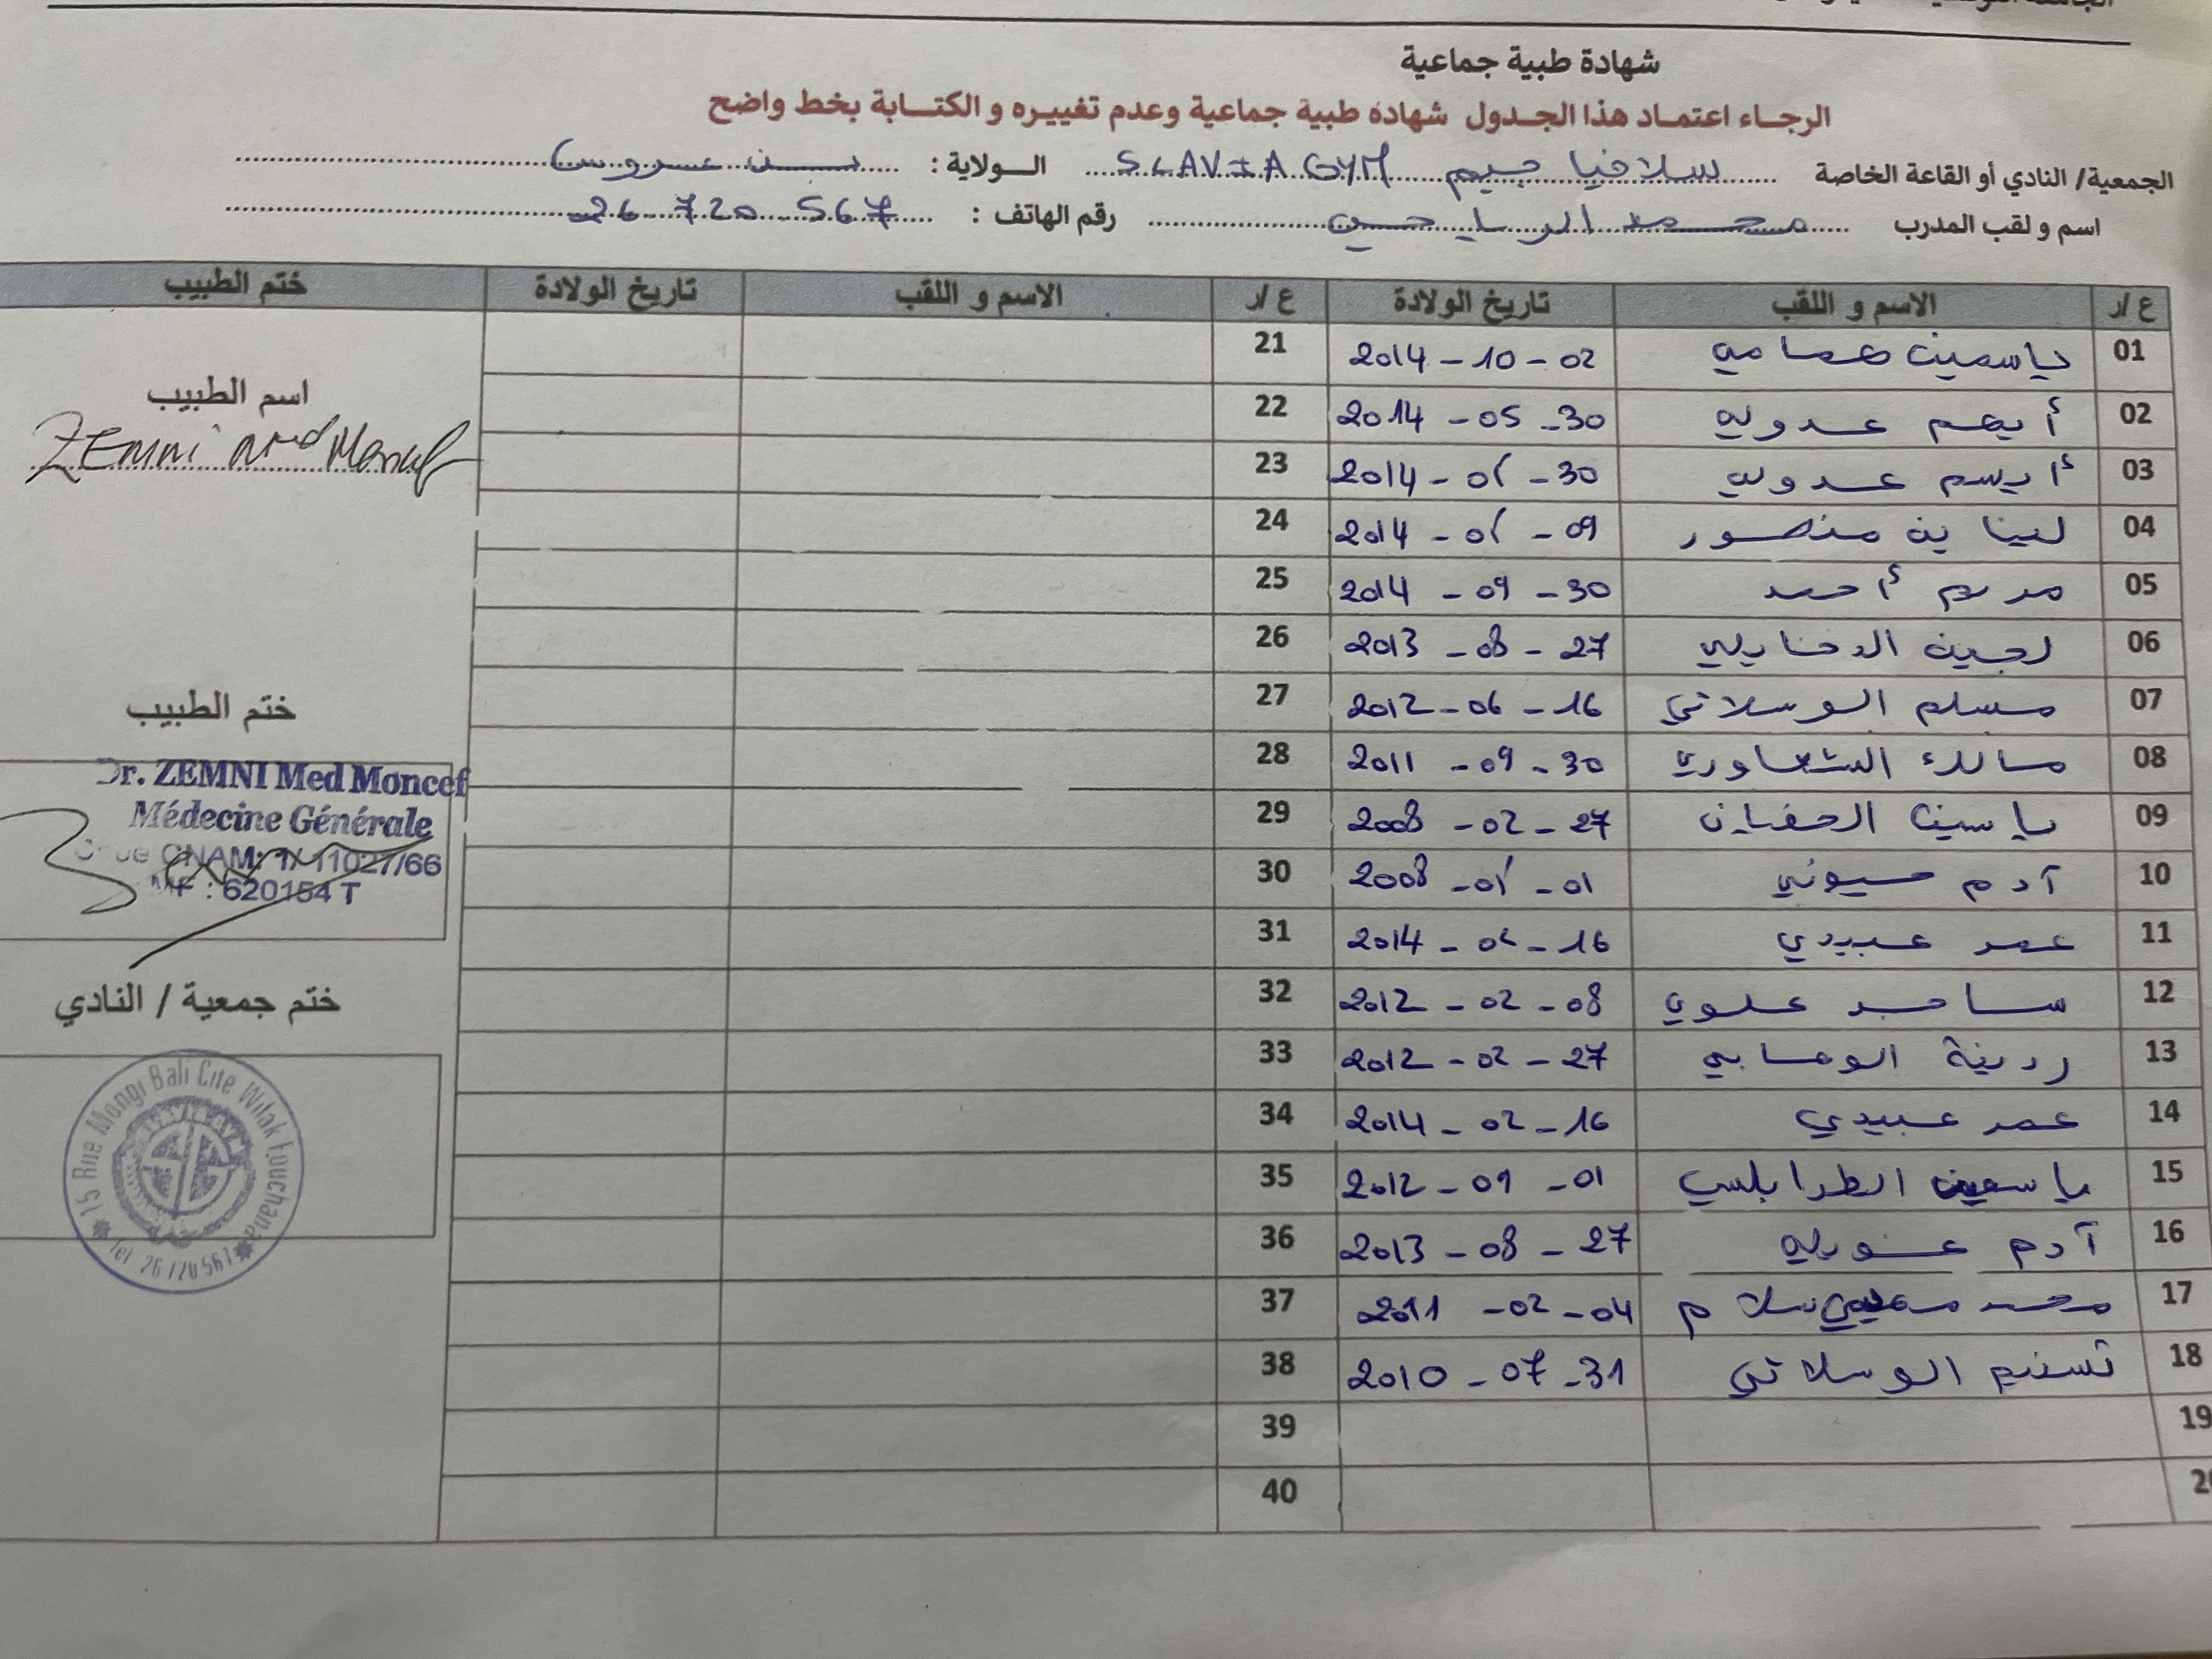 شهادة طبية جماعية
الرجاء اعتماد هذا الجدول شهادة طبية جماعية وعدم تغييره و الكتابة بخط واضح
الجمعية/ النادي أو القاعة الخاصة سلافيا جيم SLAVIA GYM الولاية : بن عروس
اسم و لقب المدرب محمد الرياحي رقم الهاتف : 26 720 567
ع /ر الاسم و اللقب تاريخ الولادة ع /ر الاسم و اللقب تاريخ الولادة ختم الطبيب
01 ياسمين همامي 2014 - 10 - 02 21
02 أيهم عدولي 2014 - 05 - 30 22
03 أريسم عدولي 2014 - 01 - 30 23
04 لينا بن منصور 2014 - 01 - 09 24
05 مريم أحمد 2014 - 09 - 30 25
06 لجين الدخايلي 2013 - 08 - 27 26
07 مسلم الوسلاتي 2012 - 06 - 16 27
08 مالك 2011 - 09 - 30 28
09 ياسين 2008 - 02 - 27 29
10 آدم 2008 - 01 - 01 30
11 عمر عبيدي 2014 - 16 31
12 ساجد علوي 2012 - 02 - 08 32
13 2012 - 02 - 27 33
14 عمر عبيدي 2014 - 02 - 16 34
15 ياسمين الطرابلسي 2012 - 09 - 01 35
16 آدم 2013 - 08 - 27 36
17 محمد سلام 2011 - 02 - 04 37
18 تسنيم الوسلاتي 2010 - 07 - 31 38
19 39
40
اسم الطبيب
ZEMNI Med Moncef
ختم الطبيب
Dr. ZEMNI Med Moncef
Médecine Générale
CNAM: 1/ 11027/66
MF : 620154 T
ختم جمعية / النادي
15 Rue Mongi Bali Cite Wilak Fouchana
Tel 26720567